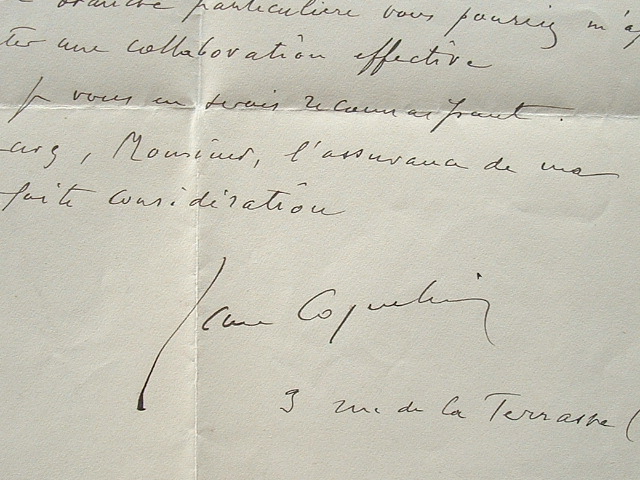 branche particulière vous pourriez m'ap
ter une collaboration effective
Je vous en serais reconnaissant.
, Monsieur, l'assurance de ma
faite considération
Jean Coquelin
3 rue de la Terrasse (